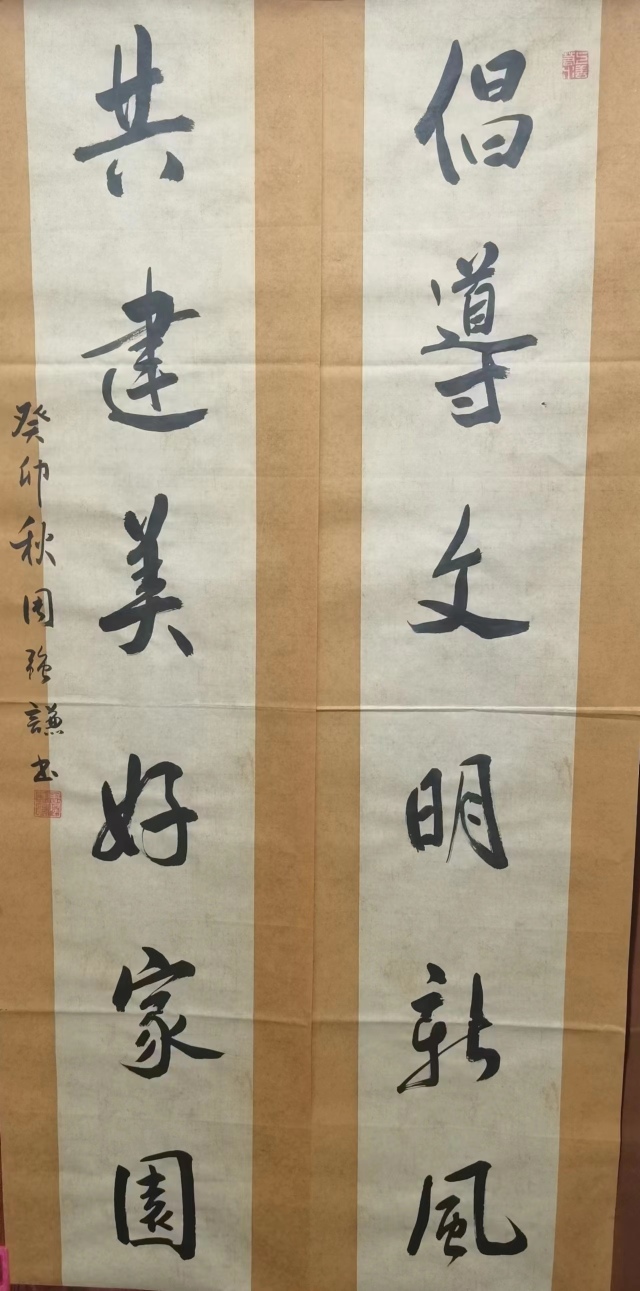 倡導文明新風
共建美好家園
癸卯秋周強謙书